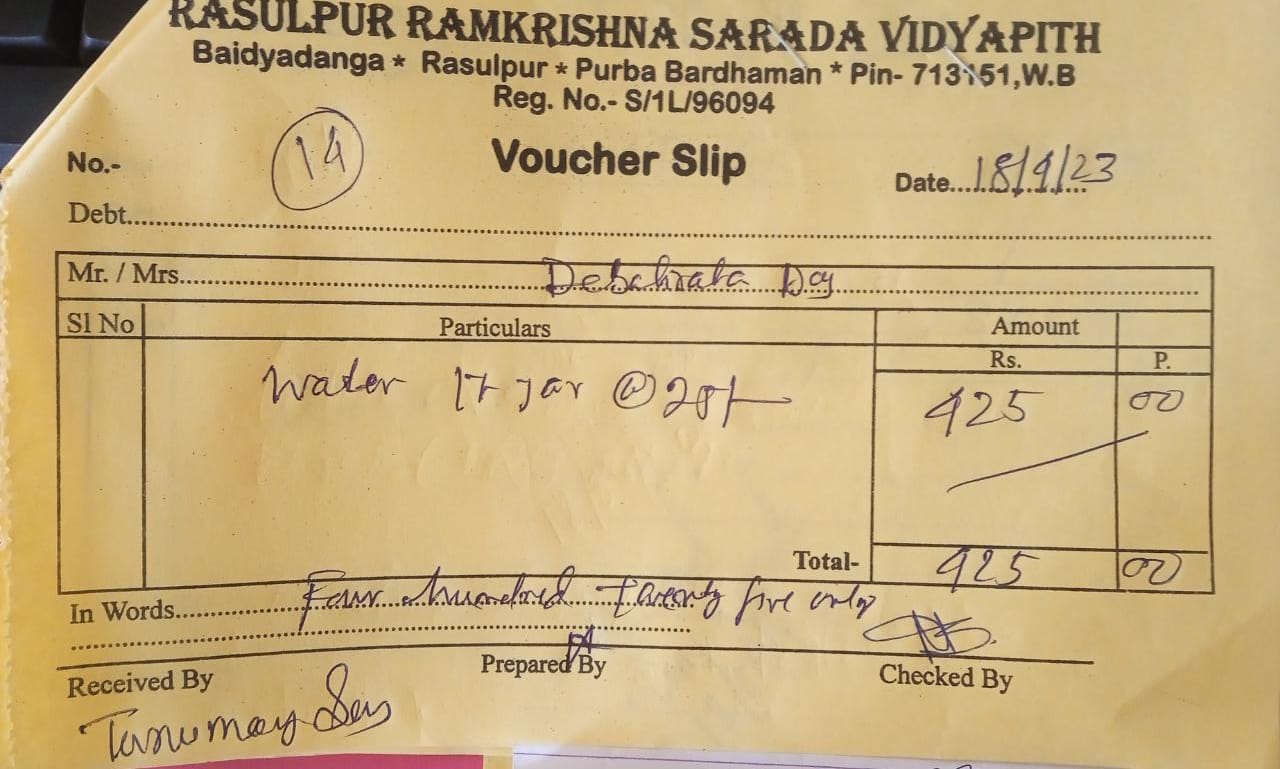 RASULPUR RAMKRISHNA SARADA VIDYAPITH
Baidyadanga * Rasulpur * Purba Bardhaman * Pin- 713151,W.B
Reg. No.- S/1L/96094
No.- 14 Voucher Slip Date...18/9/23
Debt
Mr. / Mrs. Debabrata Dey
Sl No Particulars Amount
Rs. P.
Water 17 jar @ 25/- 425 00
Total- 425 00
In Words Four hundred twenty five only
Received By Prepared By Checked By
Tanumay Das